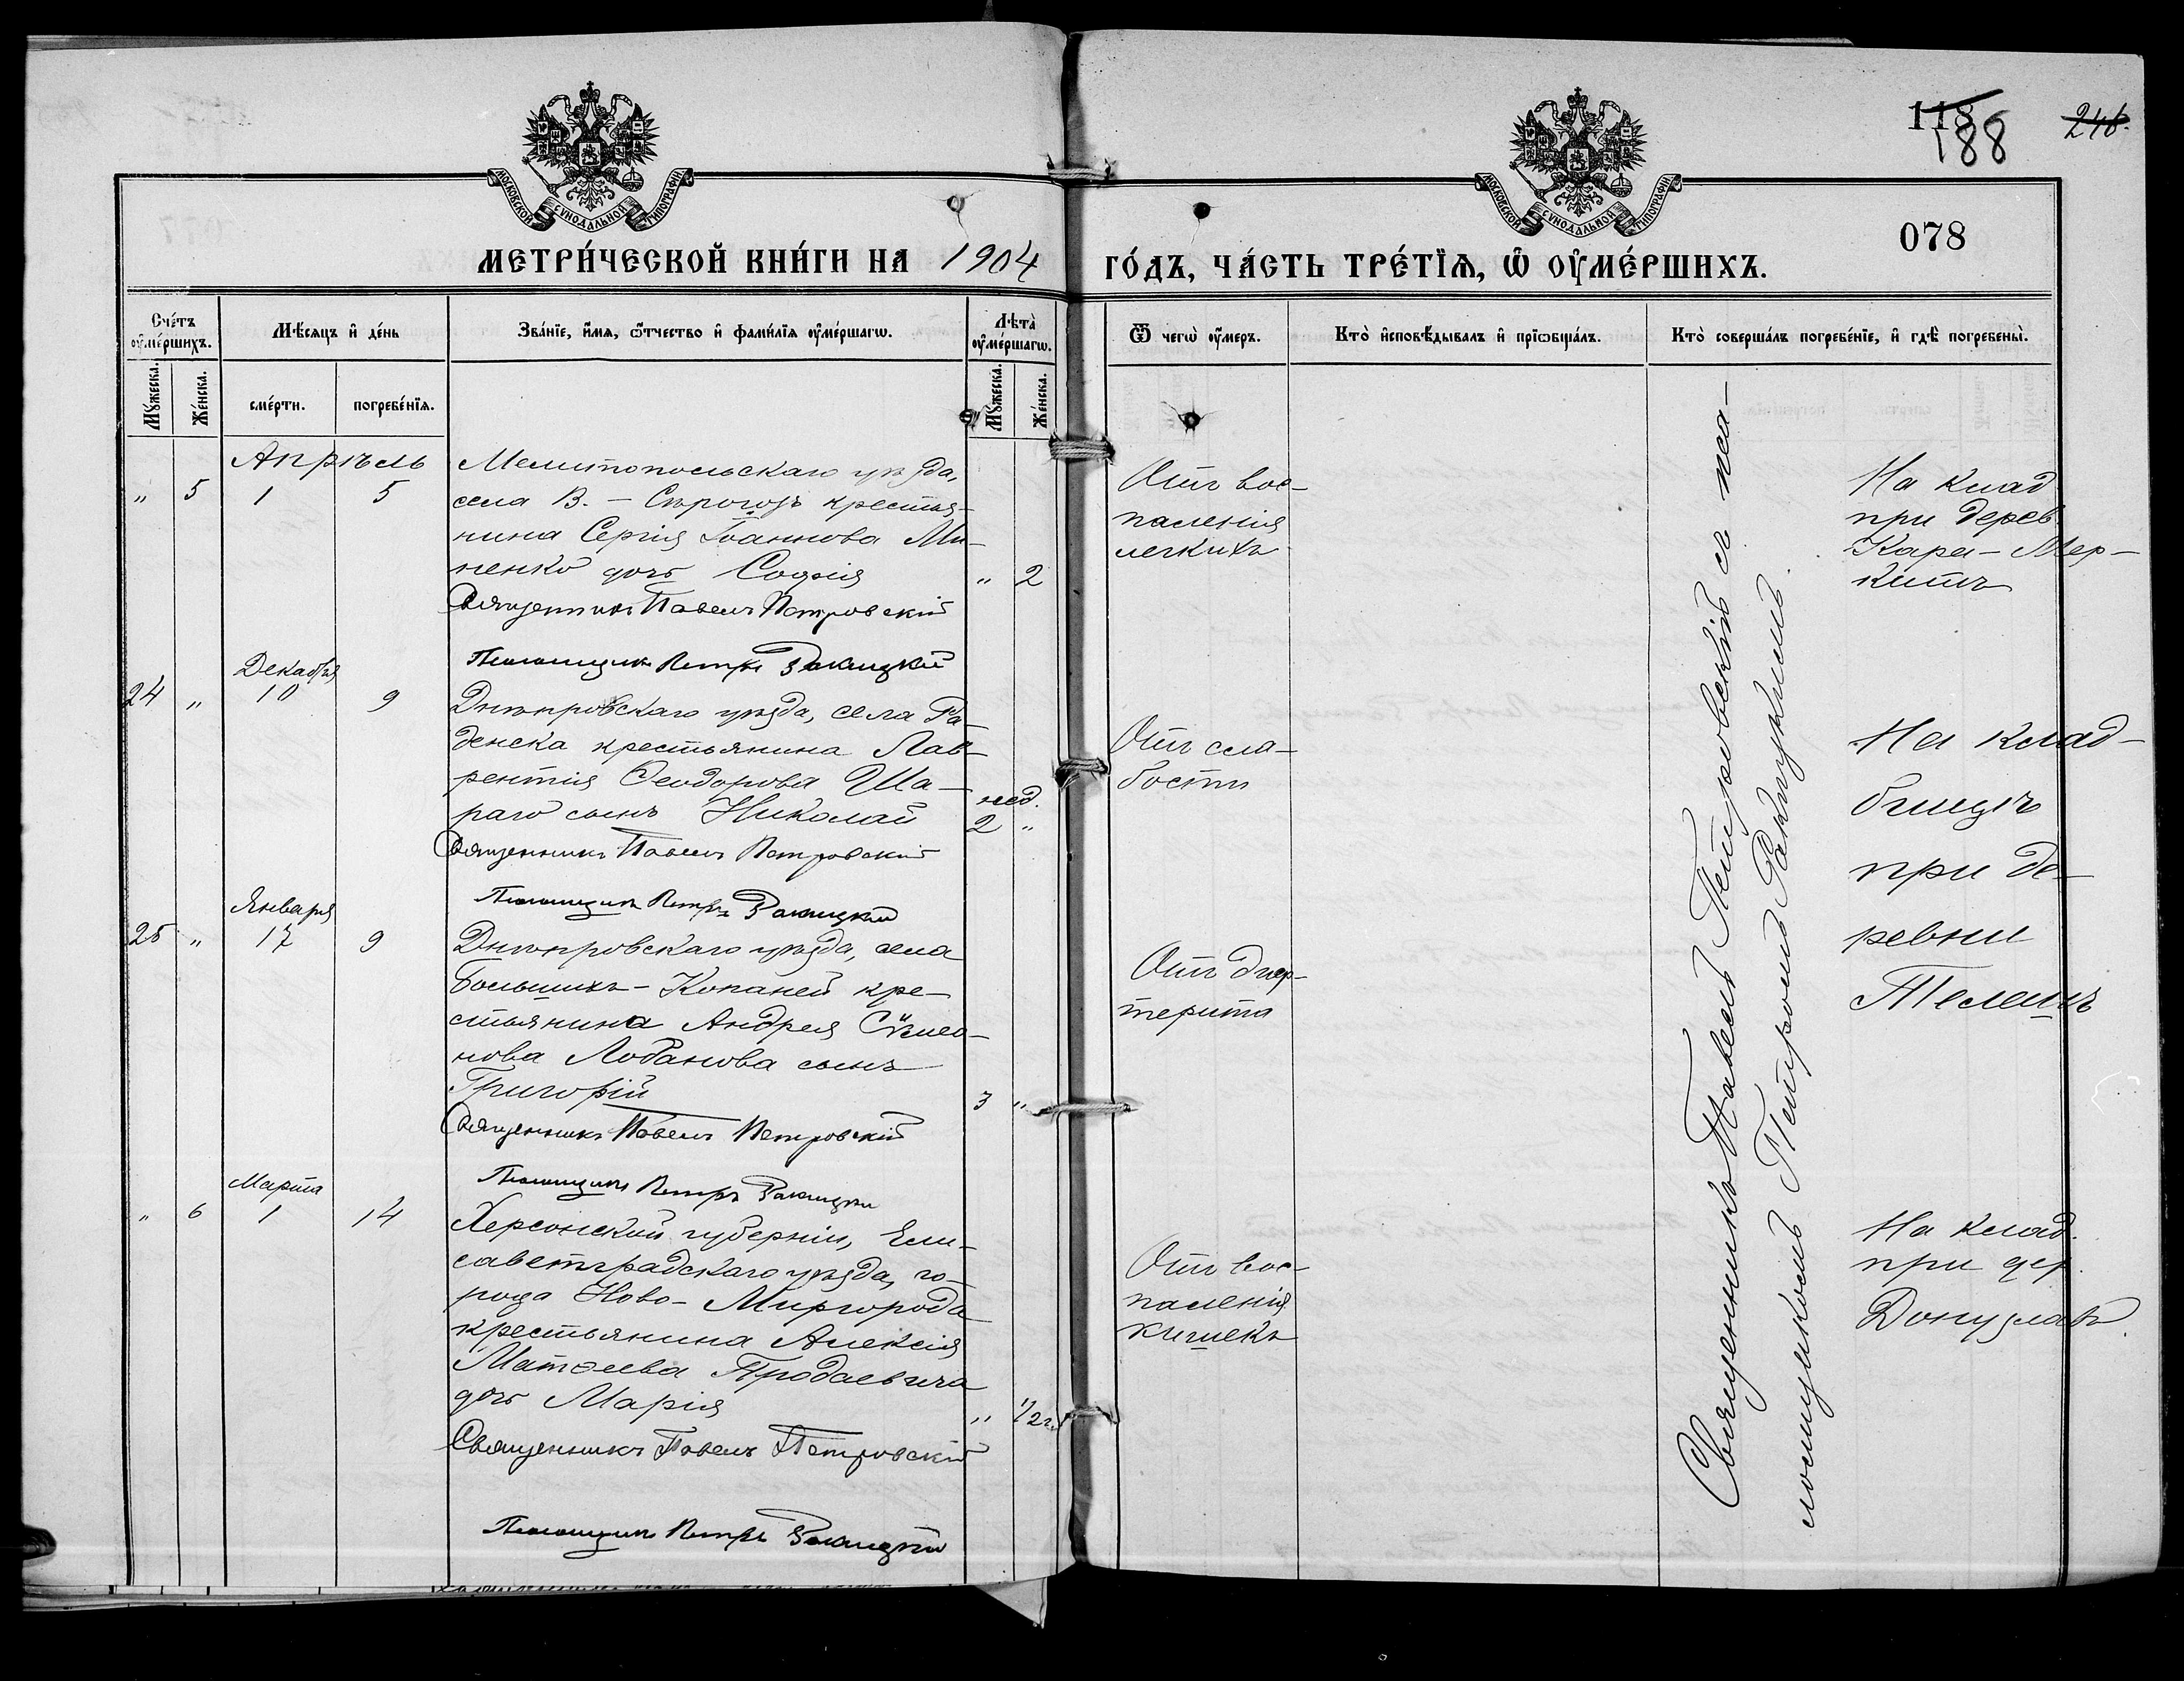 118
188
246.
078
МОСКОВСКОЙ СѴНОДАЛЬНОЙ ТИПОГРАФІИ
МОСКОВСКОЙ СѴНОДАЛЬНОЙ ТИПОГРАФІИ
МЕТРИ́ЧЕСКОЙ КНИ́ГИ НА 1904 ГО́ДЪ, ЧА́СТЬ ТРЕ́ТЇѦ, Ѡ҆ ОУ҆МЕ́РШИХЪ.
Сче́тъ оу҆ме́ршихъ.
Мꙋ́жеска.
Же́нска.
Мѣ́сяцъ и҆ де́нь
сме́рти.
погребе́нїѧ.
Зва́нїе, и҆́мѧ, ѻ҆́тчество и҆ фами́лїѧ оу҆ме́ршагѡ.
Лѣ́та оу҆ме́ршагѡ.
Мꙋ́жеска.
Же́нска.
Ѿ чегѡ̀ оу҆́меръ.
Кто̀ и҆сповѣ́дывалъ и҆ прїѡбща́лъ.
Кто̀ соверша́лъ погребе́нїе, и҆ гдѣ̀ погребены̀.
Апрѣль
" 5 1 5
Мелитопольскаго уѣзда,
села В. - Сѣрогозъ крестья-
нина Сергія Іоаннова Ми-
ненко дочь Софія " 2
Священникъ Павелъ Петровскій
Псаломщикъ Петръ Ракицкій
Отъ вос-
паленія
легкихъ
На клад
при дерев.
Кара-Мер-
китъ
Декабря
24 " 10 9
Днѣпровскаго уѣзда, села Ра-
денска крестьянина Лав-
рентія Ѳеодорова Ша-
раго сынъ Николай нед. 2 "
Священникъ Павелъ Петровскій
Псаломщикъ Петръ Ракицкій
Отъ сла-
бости
На клад-
бищѣ
при де-
ревни
Телешъ
Января
25 " 17 9
Днѣпровскаго уѣзда, села
Большихъ-Копаней кре-
стьянина Андрея Сѵмео-
нова Лобанова сынъ
Григорій 3 "
Священникъ Павелъ Петровскій
Псаломщикъ Петръ Ракицкій
Отъ диф-
терита
Марта
" 6 1 14
Херсонской губерніи, Ели-
саветградскаго уѣзда, го-
рода Ново-Миргорода
крестьянина Алексія
Матѳеева Продаевича
дочь Марія " 1/2 г.
Священникъ Павелъ Петровскій
Псаломщикъ Петръ Ракицкій
Отъ вос-
паленія
кишекъ
На клад.
при дер.
Донузлавъ
Священникъ Павелъ Петровскій съ пса-
ломщикомъ Петромъ Ракицкимъ.